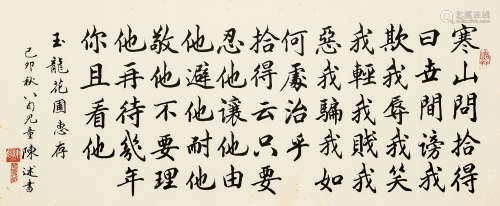 寒山問拾得
曰世間謗我
欺我辱我笑
我輕我賤我
惡我騙我如
何處治乎
拾得云只要
忍他讓他由
他避他耐他
敬他不要理
他再待幾年
你且看他
玉龍花圃惠存
己卯秋八旬兒童陳述書